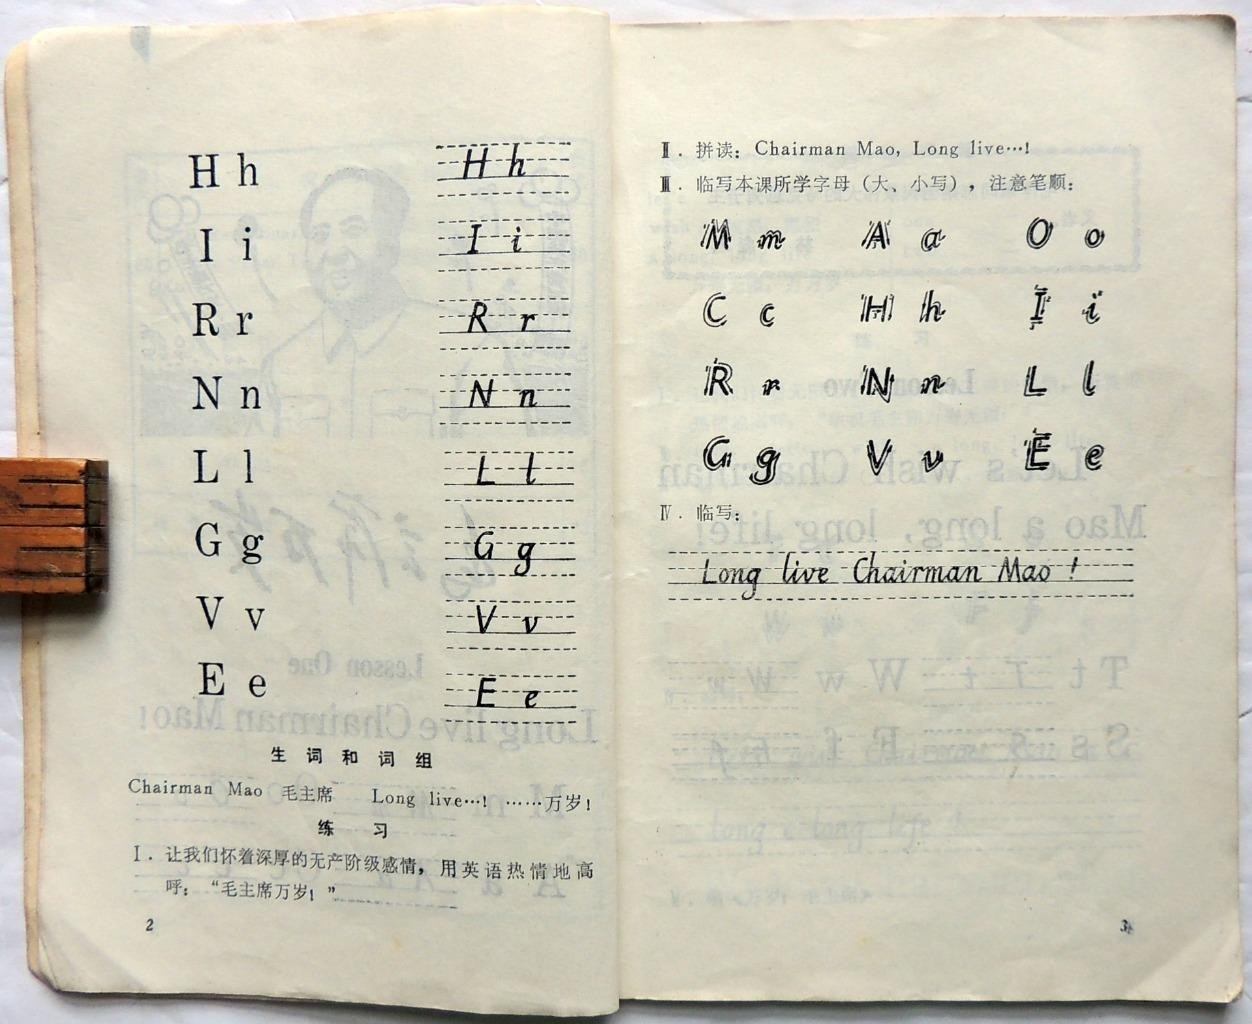 H h H h
I i I i
R r R r
N n N n
L l L l
G g G g
V v V v
E e E e
生词和词组
Chairman Mao 毛主席 Long live…! ……万岁!
练 习
Ⅰ. 让我们怀着深厚的无产阶级感情，用英语热情地高
呼：“毛主席万岁！”
2
Ⅱ. 拼读：Chairman Mao, Long live…!
Ⅲ. 临写本课所学字母（大、小写），注意笔顺：
M m A a O o
C c H h I i
R r N n L l
G g V v E e
Ⅳ. 临写：
Long live Chairman Mao !
3